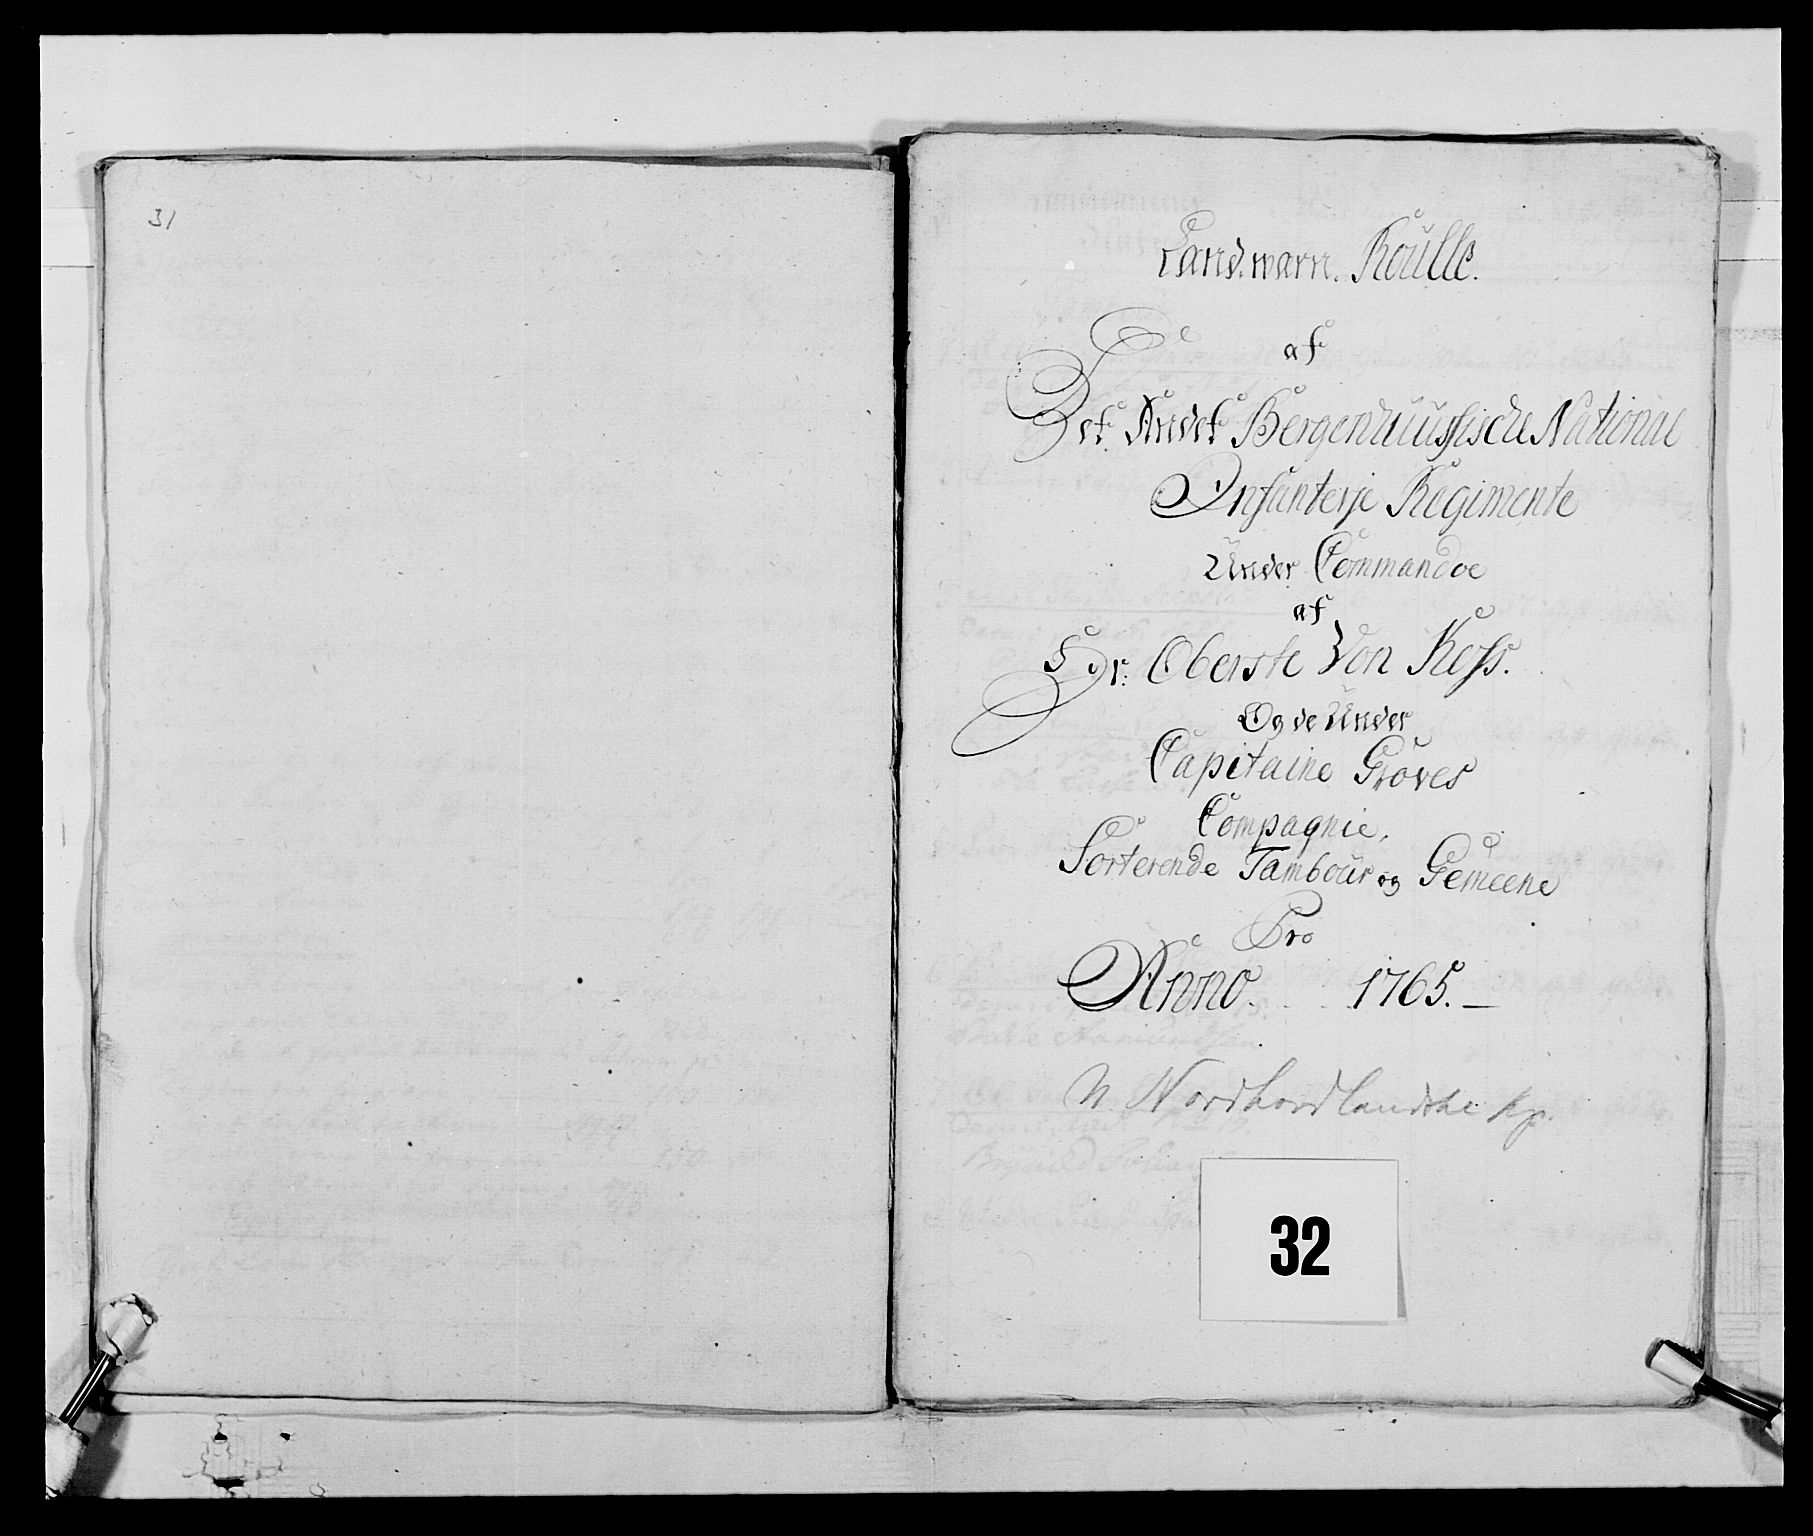 31
Landmarn. Roulle.
af
Det Andet Bergenhuussische National
Infanterje Regimente
Under Commandoe
af
Hr: Oberste Von Koss.
Og de Under
Capitaine Groves
Compagnie,
Sorterende Tambour og Gemeene
Pro
Anno 1765.
N. Nordhordlandske Kp.
32